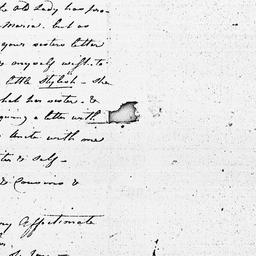 the old Lady has pro
Maria. but as
your sisters letter
myself wish to
little stylish - She
what her sister. &
a letter with
Unite with me
& self -
& Cousins &
my Affectionate